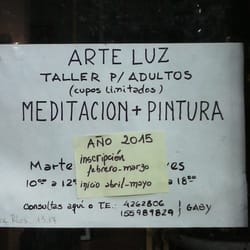 ARTE LUZ
TALLER P/ADULTOS
(cupos limitados)
MEDITACION + PINTURA
AÑO 2015
inscripción
febrero-marzo
inicio abril-mayo
Marte
es
10⁰⁰ a 12
a 18⁰⁰
Consultas aquí o T.E.: 4262806
155989829 } GABY